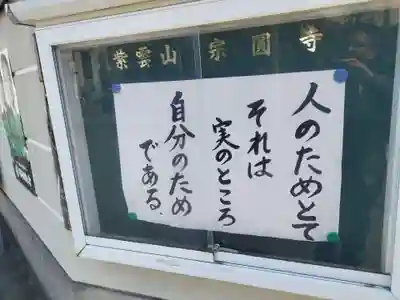 紫雲山 宗圓寺
人のためとて
それは
実のところ
自分のため
である.